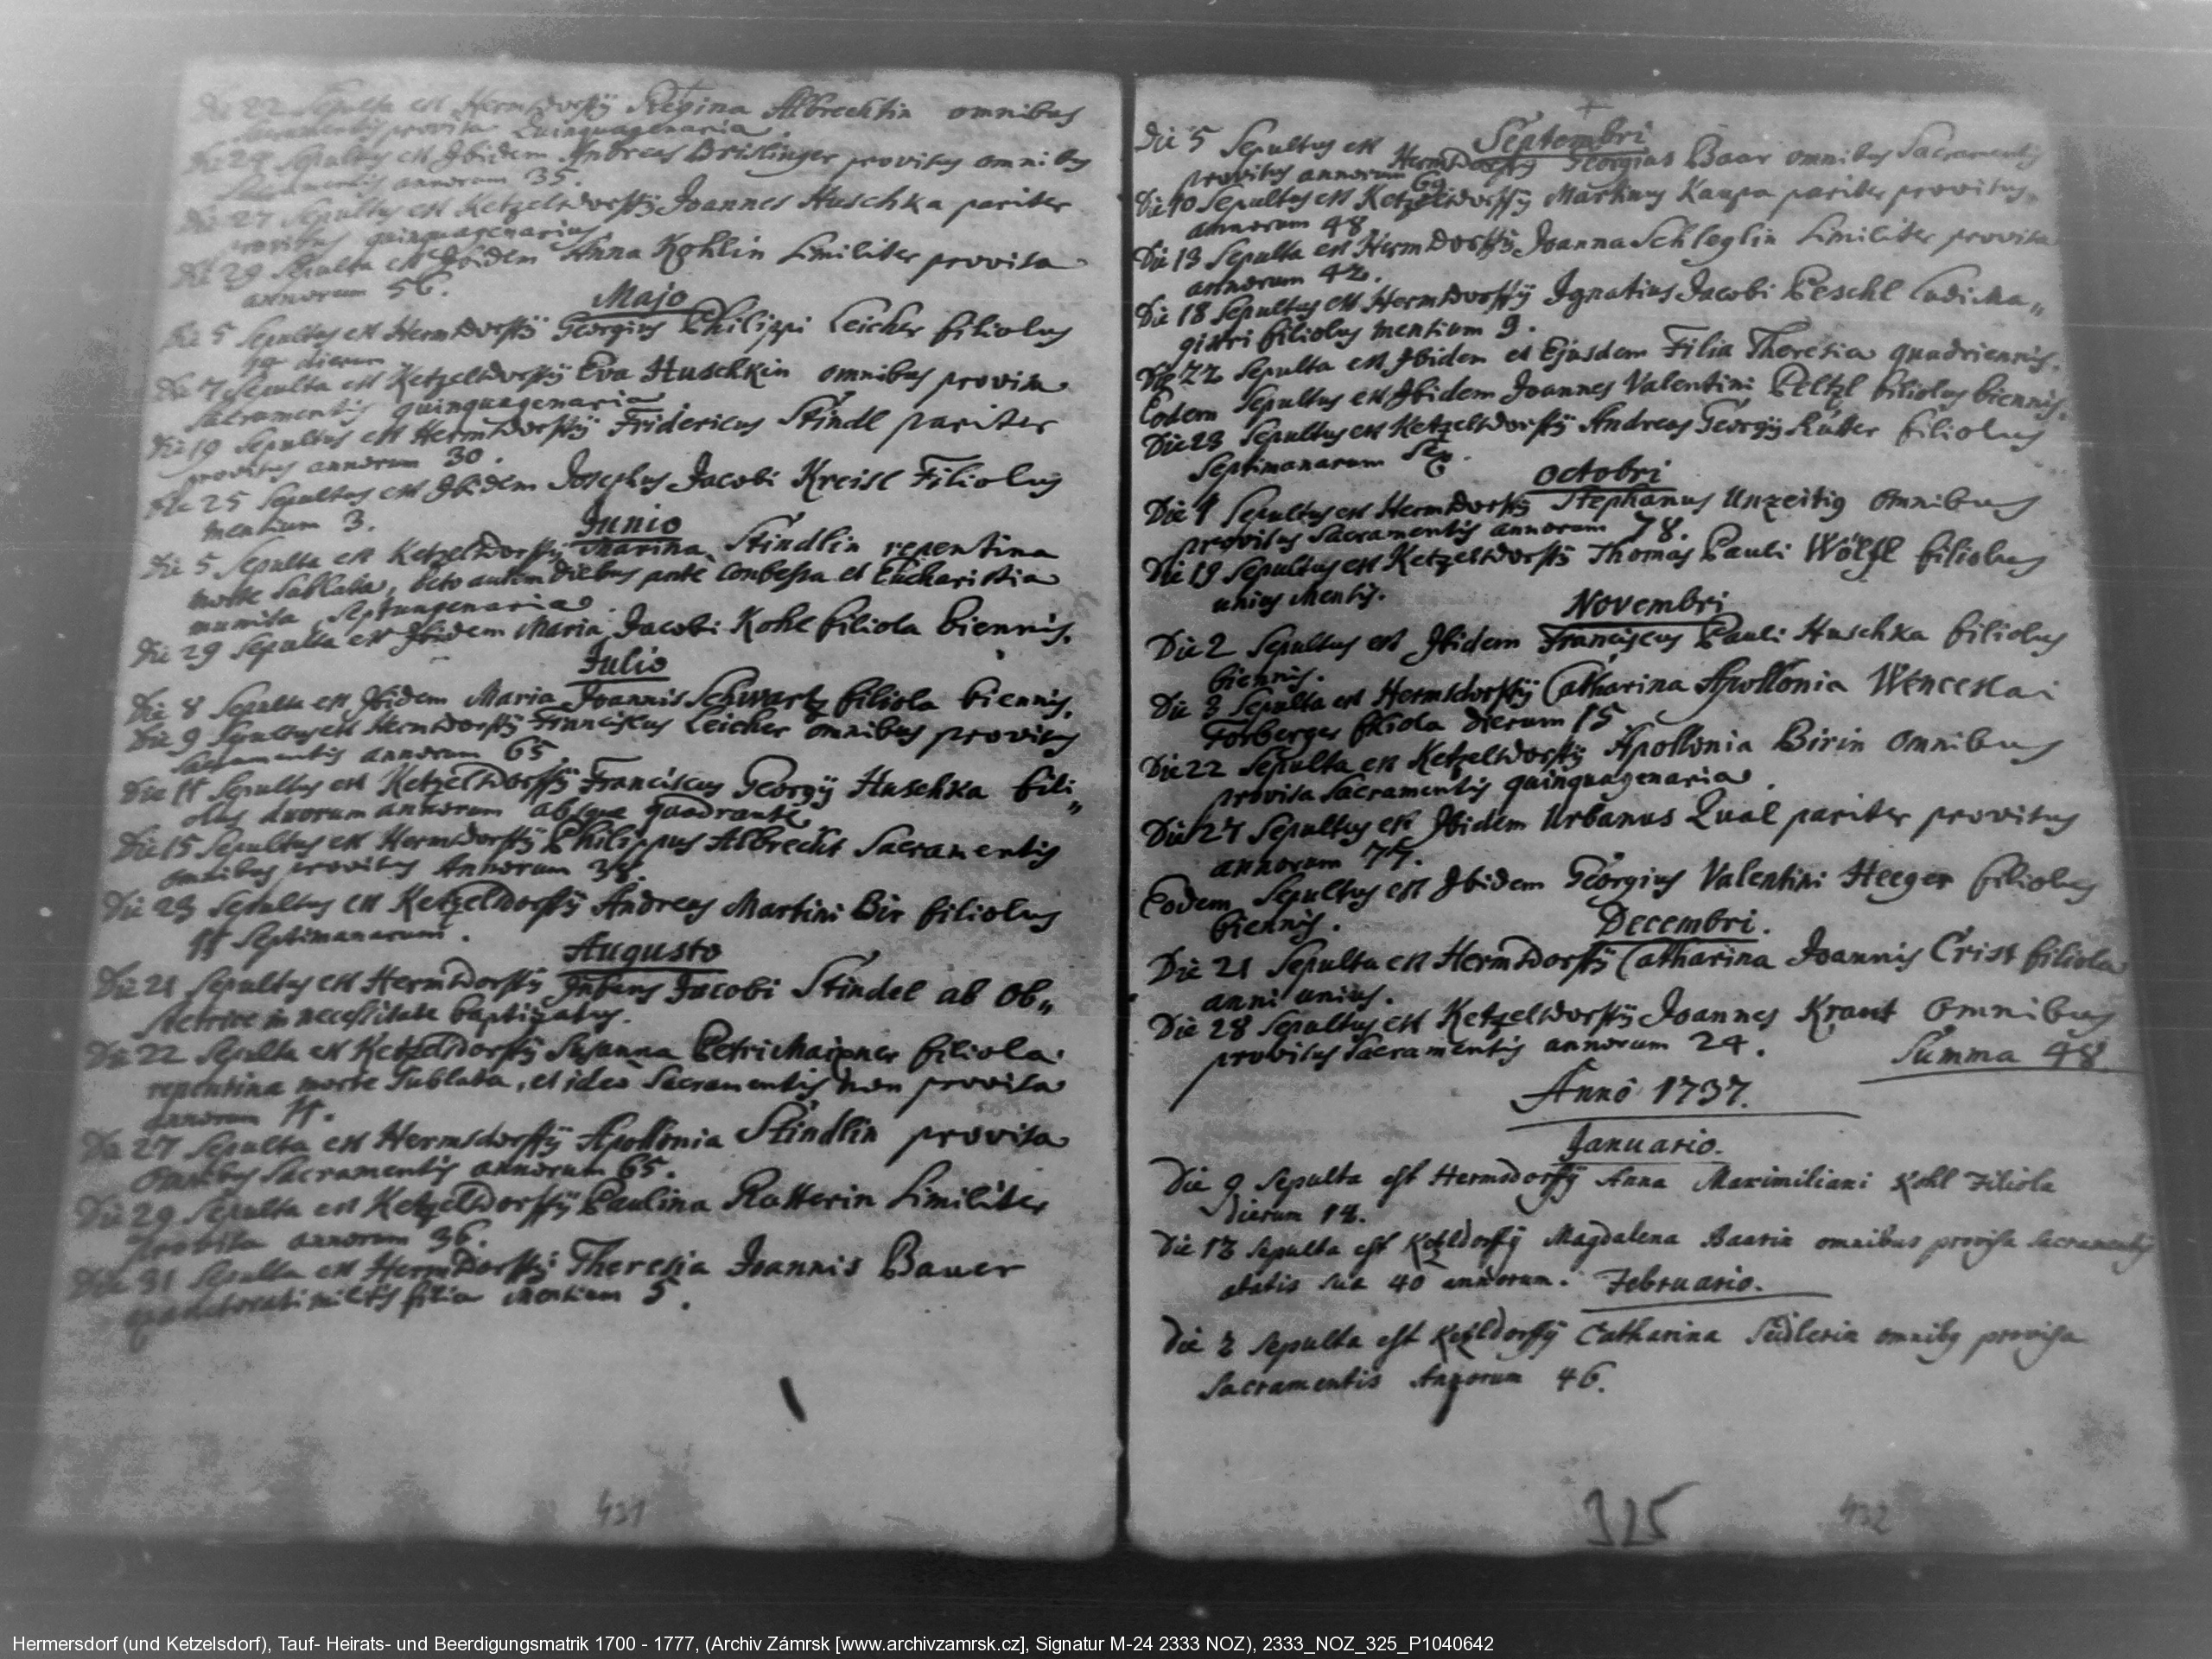 Die 22 Sepulta est Hermsdorffÿ Regina Albrechtin omnibus
Sacramentis provisa Quinquagenaria.
Sepultus est Ibidem Andreas Brislinger provisus omnibus
Sacramentis annorum 35.
Die 27 Sepultus est Ketzelsdorffÿ Joannes Huschka pariter
provisus quinquagenarius
Die 29 Sepulta est Ibidem Anna Kohlin Similiter provisa
annorum 56.
Majo
Die 5 Sepultus est Hermsdorffÿ Georgius Philippi Leicher filiolus
dierum
Die 7 Sepulta est Ketzelsdorffÿ Eva Huschkin omnibus provisa
Sacramentis quinquagenaria.
Die 19 Sepultus est Hermsdorffÿ Fridericus Stindl pariter
provisus annorum 30.
Die 25 Sepultus est Ibidem Josephus Jacobi Kreisl Filiolus
mensium 3.
Junio
Die 5 Sepulta est Ketzelsdorffÿ Marina Stindlin repentina
morte Sablata, octo autem diebus ante confessa et Eucharistia
munita Septuagenaria.
Die 29 Sepulta est Ibidem Maria Jacobi Kohl filiola biennis.
Julio
Die 8 Sepulta est Ibidem Maria Joannis Schwartz filiola biennis.
Die 9 Sepultus est Hermsdorffÿ Franciscus Leicher omnibus provisus
Sacramentis annorum 65.
Die 11 Sepultus est Ketzelsdorffÿ Franciscus Georgÿ Huschka fili„
olus duorum annorum absque quadrante.
Die 15 Sepultus est Hermsdorffÿ Philippus Albrecht Sacramentis
omnibus provisus Annorum
Die 23 Sepultus est Ketzelsdorffÿ Andreas Martini Bir filiolus
11 Septimanarum.
Augusto
Die 21 Sepultus est Hermsdorffÿ Infans Jacobi Stindel ab Ob„
stetrice in necessitate baptizatus.
Die 22 Sepulta est Ketzelsdorffÿ Susanna Petri Maixner filiola
repentina morte Sublata, et ideo Sacramentis non provisa
annorum 11.
Die 27 Sepulta est Hermsdorffÿ Apollonia Stindlin provisa
Omnibus Sacramentis annorum 65.
Die 29 Sepulta est Ketzelsdorffÿ Paulina Rutterin Similiter
provisa annorum 36.
Die 31 Sepulta est Hermsdorffÿ Theresia Joannis Bauer
militis filia Mensium 5.
431
Septembri
Die 5 Sepultus est Hermsdorffÿ Georgius Baar omnibus Sacramentis
provisus annorum 69
Die 10 Sepultus est Ketzelsdorffÿ Martinus Kaupa pariter provisus
annorum 48
Die 13 Sepulta est Hermsdorffÿ Joanna Schleglin Similiter provisa
annorum 42.
Die 18 Sepultus est Hermsdorffÿ Ignatius Jacobi Peschl Ludima„
gistri filiolus mensium 9.
Die 22 Sepulta est Ibidem et Ejusdem Filia Theresia quadriennis.
Eodem Sepultus est Ibidem Joannes Valentini Peltzl filiolus biennis.
Die 23 Sepultus est Ketzelsdorffÿ Andreas Georgÿ Rutter filiolus
Septimanarum Sex.
Octobri
Die 4 Sepultus est Hermsdorffÿ Stephanus Unzeitig Omnibus
provisus Sacramentis annorum 78.
Die 19 Sepultus est Ketzelsdorffÿ Thomas Pauli Wölfl filiolus
unius Mensis.
Novembri
Die 2 Sepultus est Ibidem Franciscus Pauli Huschka filiolus
biennis.
Die 3 Sepulta est Hermsdorffÿ Catharina Apollonia Wenceslai
Forberger filiola dierum 15
Die 22 Sepulta est Ketzelsdorffÿ Apollonia Birin Omnibus
provisa Sacramentis quinquagenaria.
Die 27 Sepultus est Ibidem Urbanus Qual pariter provisus
annorum 77.
Eodem Sepultus est Ibidem Georgius Valentini Heeger filiolus
biennis.
Decembri.
Die 21 Sepulta est Hermsdorffÿ Catharina Joannis Crist filiola
anni unius.
Die 28 Sepultus est Ketzelsdorffÿ Joannes Kraut Omnibus
provisus Sacramentis annorum 24.
Summa 48.
Anno 1737.
Januario.
Die 9 Sepulta est Hermsdorffÿ Anna Maximiliani Kohl Filiola
dierum 12.
Die 12 Sepulta est Ketzldorffÿ Magdalena Baarin omnibus provisa Sacramentis
ætatis suæ 40 annorum.
Februario.
Die 2 Sepulta est Ketzldorffÿ Catharina Seidlerin omnibg provisa
Sacramentis Annorum 46.
325
432
Hermersdorf (und Ketzelsdorf), Tauf- Heirats- und Beerdigungsmatrik 1700 - 1777, (Archiv Zámrsk [www.archivzamrsk.cz], Signatur M-24 2333 NOZ), 2333_NOZ_325_P1040642